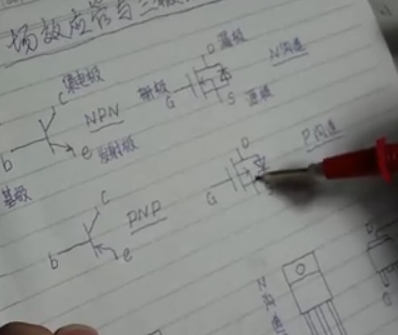 场效应管与三极
c 集电极
NPN
b
e 发射极
基极
D 漏极
N沟道
栅极
G
S 源极
P沟道
D
G
c
PNP
b
e
N沟道